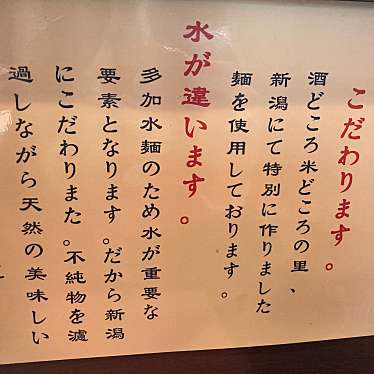 こだわります。
酒どころ米どころの里、
新潟にて特別に作りました
麺を使用しております。
水が違います。
多加水麺のため水が重要な
要素となります。だから新潟
にこだわりまた。不純物を濾
過しながら天然の美味しい